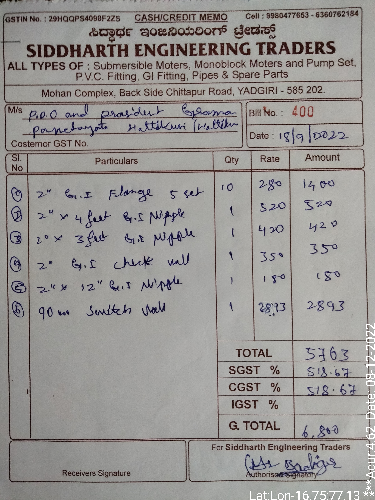 GSTIN No. : 29HQQPS4098F2ZS CASH/CREDIT MEMO Cell : 9980477653 - 6360762184
ಸಿದ್ಧಾರ್ಥ ಇಂಜಿನಿಯರಿಂಗ್ ಟ್ರೇಡರ್ಸ್
SIDDHARTH ENGINEERING TRADERS
ALL TYPES OF : Submersible Moters, Monoblock Moters and Pump Set,
P.V.C. Fitting, GI Fitting, Pipes & Spare Parts
Mohan Complex, Back Side Chittapur Road, YADGIRI - 585 202.
M/s P.D.O and president Grama
Panchayata Hattikuni / Hattikuni
Bill No. : 400
Costemer GST No.
Date : 18/9/2022
Sl. No Particulars Qty Rate Amount
1 2" G.I Flange 5 set 10 280 1400
2 2" x 4 feet G.I Nipple 1 520 520
3 2" x 3 feet G.I Nipple 1 420 420
4 2" G.I check vall 1 350 350
5 2" x 12" G.I Nipple 1 180 180
6 90 mm vall 1 2893 2893
TOTAL 5763
SGST % 518.67
CGST % 518.67
IGST %
G. TOTAL 6,800
For Siddharth Engineering Traders
Receivers Signature
Authorised Signatory
Lat:Lon-16.7577,77.13
***Acur:4.62 Date: 08-12-2022